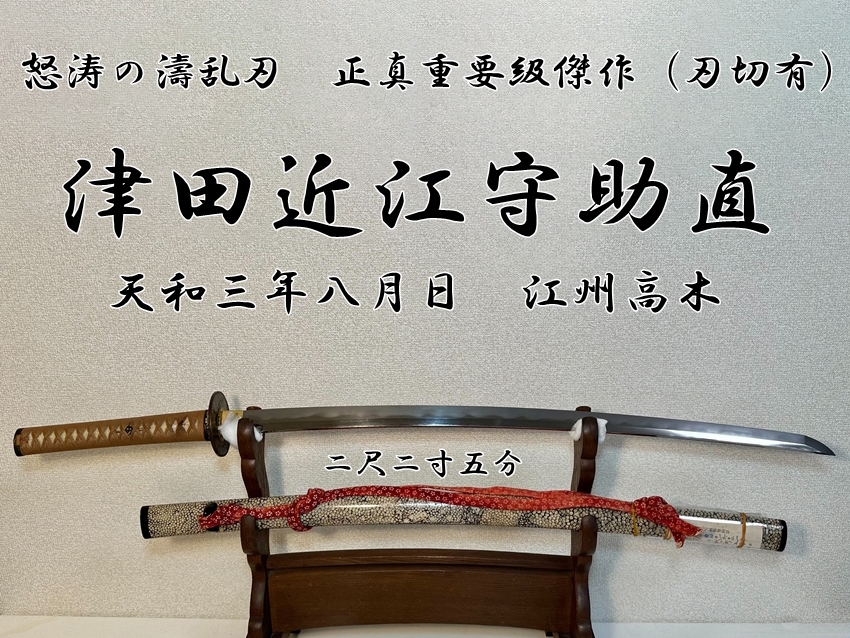 怒涛の濤乱刃 正真重要級傑作（刃切有）
津田近江守助直
天和三年八月日 江州高木
二尺二寸五分